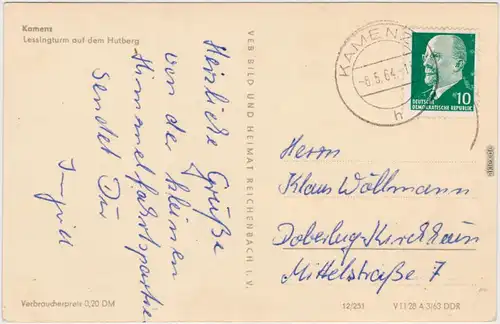 Kamenz
Lessingturm auf dem Hutberg
Herzliche Grüße
von der kleinen
Himmelfahrtspartie
Sendet Dir
Ingrid
Verbraucherpreis 0,20 DM
VEB BILD UND HEIMAT REICHENBACH i. V.
KAMENZ
-6.5.64.-1
h
10
DEUTSCHE
DEMOKRATISCHE REPUBLIK
Herrn
Klaus Wöllmann
Doberlug-Kirchhain
Mittelstraße 7
12/251
V 11 28 A 3/63 DDR